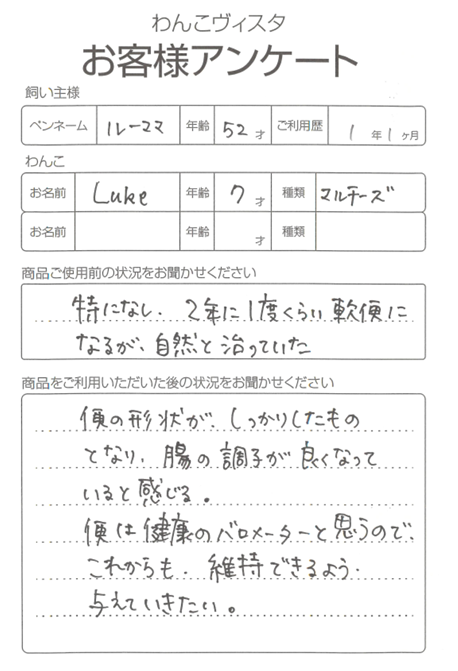 わんこヴィスタ
お客様アンケート
飼い主様
ペンネーム ルーママ 年齢 52才 ご利用歴 1年1ヶ月
わんこ
お名前 Luke 年齢 7才 種類 マルチーズ
お名前 年齢 才 種類
商品ご使用前の状況をお聞かせください
特になし. 2年に1度くらい軟便に
なるが、自然と治っていた
商品をご利用いただいた後の状況をお聞かせください
便の形状が、しっかりしたもの
となり、腸の調子が良くなって
いると感じる。
便は健康のバロメーターと思うので、
これからも、維持できるよう、
与えていきたい。